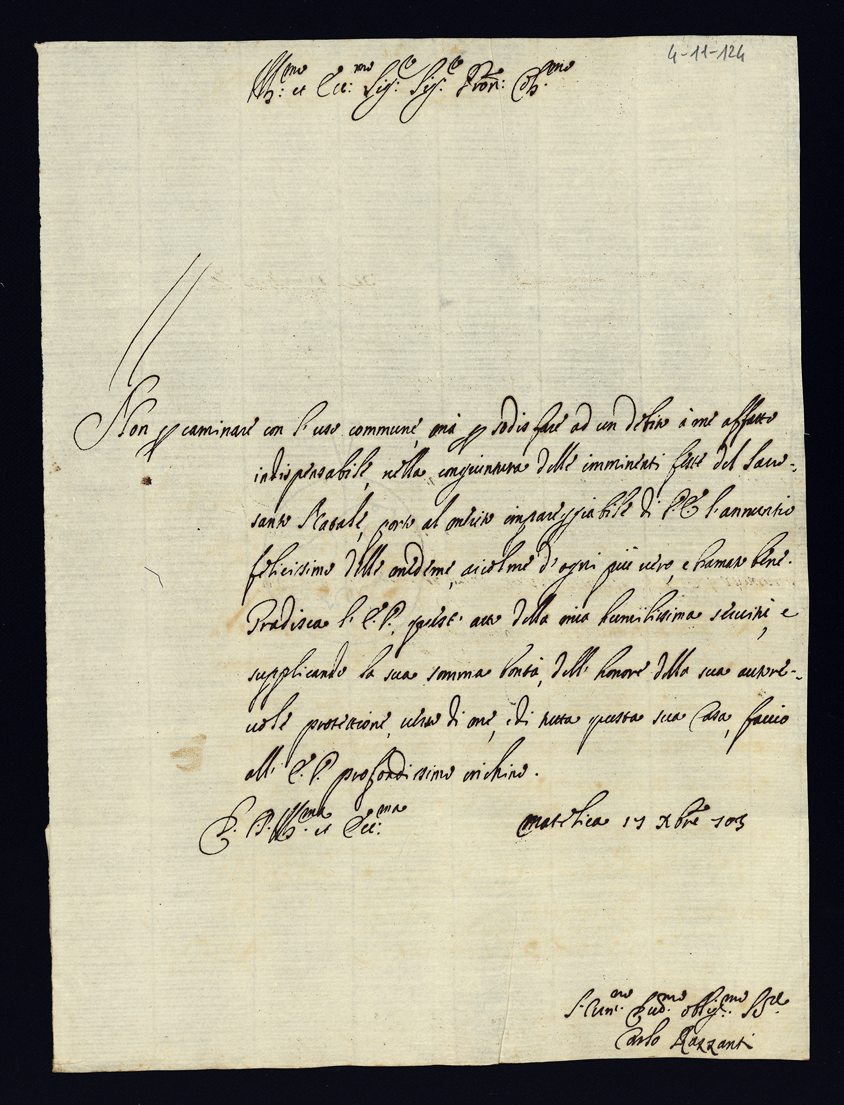 4-11-124
Ill:mo et Ecc:mo Sig:re Sig:re Pron: Col:mo
Non p caminare con l'uso commune, mà p sodisfare ad un debito à me affatto
indispensabile, nella congiuntura delle imminenti feste del Sacro-
santo Natale, porto al merito impareggiabile di V.E. l'annuntio
felicissimo delle medeme, ricolme d'ogni più vero, e bramato bene.
Gradisca l'E.V. quest' atto della mia humilissima servitù, e
supplicando la sua somma bontà, dell' honore della sua autore-
vole protettione, verso di me, e di tutta questa sua Casa, faccio
all' E.V. profondissimo inchino.
D. V. Ill:ma et Ecc:ma
Matelica 17 Xbre 703
Dev:mo oblig:mo S:re
Carlo Razzanti